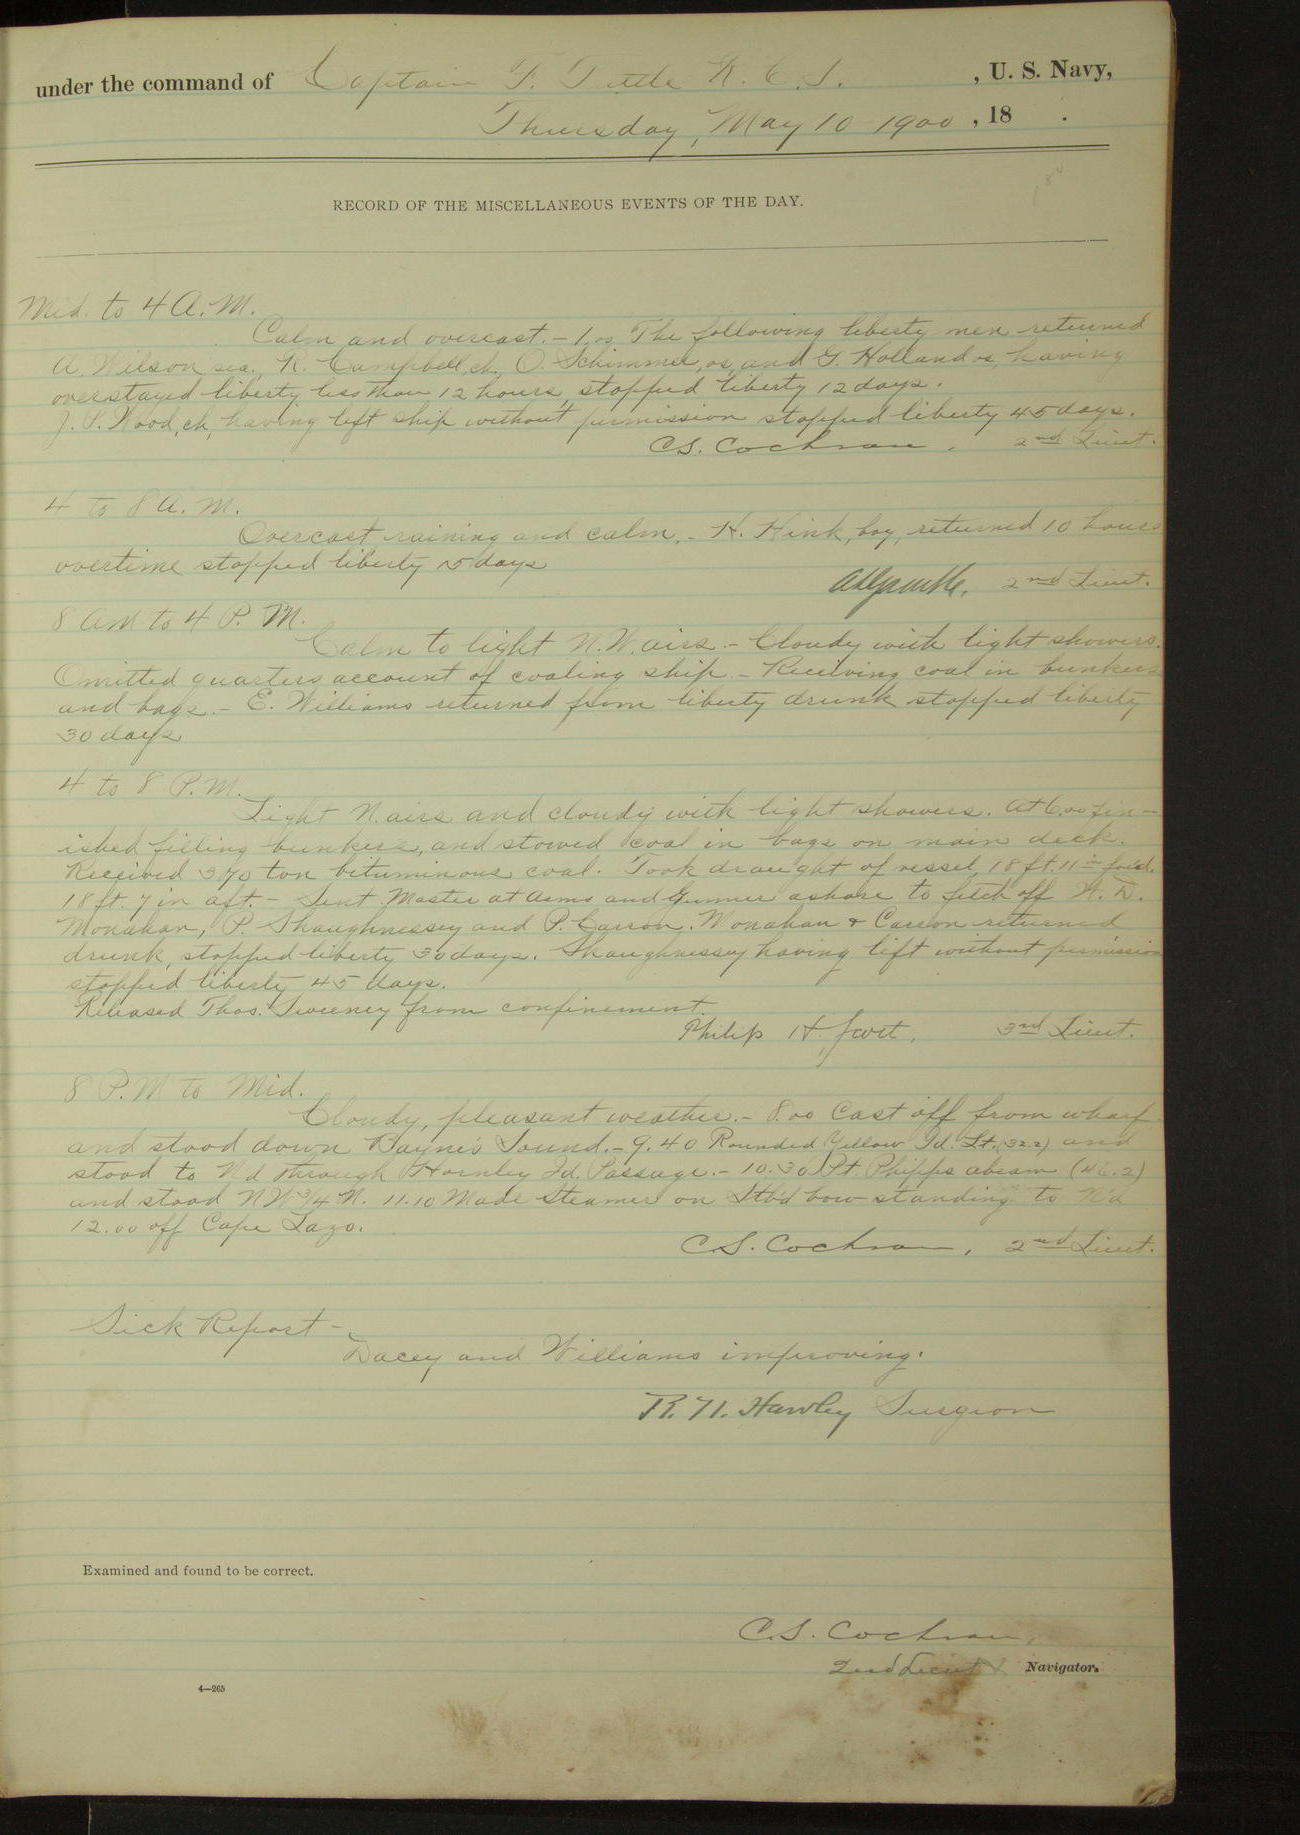 under the command of Captain F. Tuttle R. C. S. , U. S. Navy,
Thursday, May 10 1900 , 18 .
RECORD OF THE MISCELLANEOUS EVENTS OF THE DAY.
Mid. to 4 A. M.
Calm and overcast. - 1.00 The following liberty men returned
A. Wilson sea. R. Campbell, ck. O. Schimmel, os, and G. Holland os, having
overstayed liberty less than 12 hours, stopped liberty 12 days.
J. P. Wood, ck, having left ship without permission stopped liberty 45 days.
C.S. Cochran, 2nd Lieut.
4 to 8 A. M.
Overcast raining and calm. - H. Hink, boy, returned 10 hours
overtime stopped liberty 5 days
2nd Lieut.
8 AM to 4 P. M.
Calm to light N.W. airs. - Cloudy with light showers.
Omitted quarters account of coaling ship. - Receiving coal in bunkers
and bags. - E. Williams returned from liberty drunk stopped liberty
30 days
4 to 8 P.M.
Light N. airs and cloudy with light showers. At 6.00 fin-
ished filling bunkers, and stowed coal in bags on main deck.
Received 370 ton bituminous coal. Took draught of vessel, 18 ft. 11 in ford.
18 ft. 7 in aft. - Sent Master at Arms and Gunner ashore to fetch off W. D.
Monahan, P. Shaughnessey and P. Carron. Monahan & Carron returned
drunk, stopped liberty 30 days. Shaughnessey having left without permission
stopped liberty 45 days.
Released Thos. Sweeney from confinement.
Philip H. 3rd Lieut.
8 P.M to Mid.
Cloudy, pleasant weather. - 8.00 Cast off from wharf
and stood down Baynes Sound. - 9.40 Rounded Yellow Id. Lt. (32.2) and
stood to N'd through Hornley Id. Passage. - 10.30 Pt. Phipps abeam (46.2)
and stood NW 3/4 N. 11.10 Made Steamer on Stb'd bow standing to N'd
12.00 off Cape Lazo.
C.S. Cochran, 2nd Lieut.
Sick Report -
Dacey and Williams improving.
R. N. Hawley Surgeon
Examined and found to be correct.
C.S. Cochran,
2nd Lieut & Navigator.
4—265